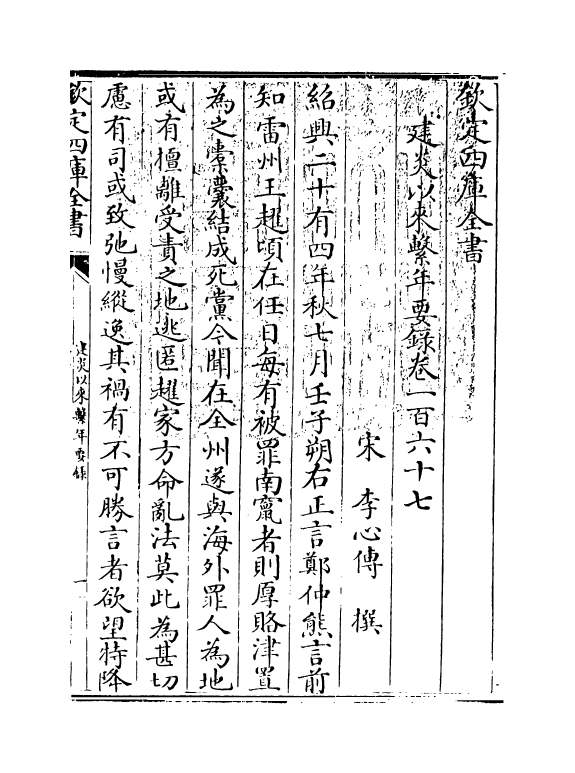 欽定四庫全書
建炎以來繫年要錄卷一百六十七
宋 李心傳 撰
紹興二十有四年秋七月壬子朔右正言鄭仲熊言前
知雷州王趯頃在任日每有被罪南竄者則厚賂津置
為之橐囊結成死黨今聞在全州遂與海外罪人為地
或有擅離受責之地逃匿趯家方命亂法莫此為甚切
慮有司或致弛慢縱逸其禍有不可勝言者欲望特降
欽定四庫全書
建炎以來繫年要錄
一